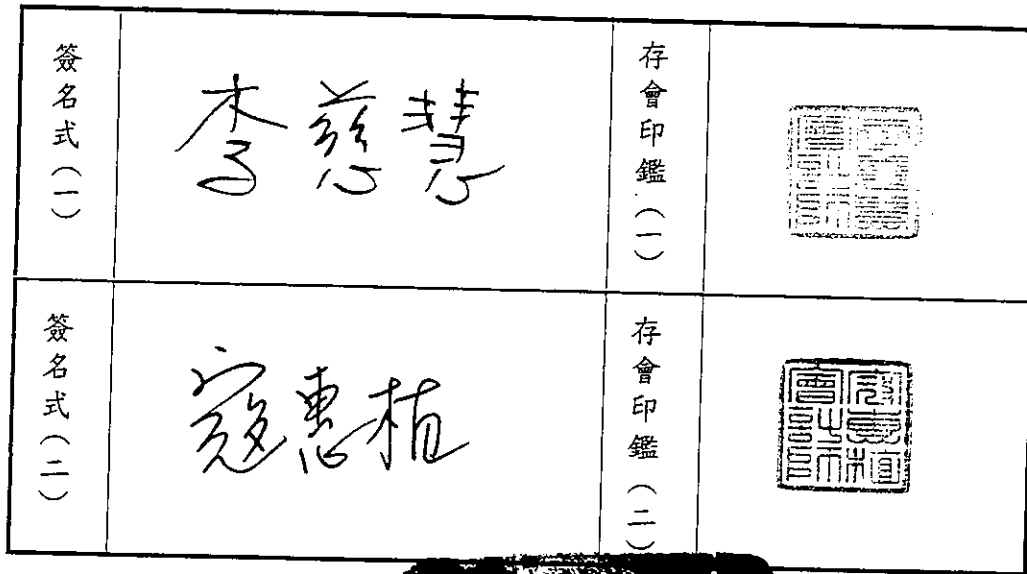 簽名式（一）
李慈慧
存會印鑑（一）
李慈慧會計師
簽名式（二）
寇惠植
存會印鑑（二）
寇惠植會計師